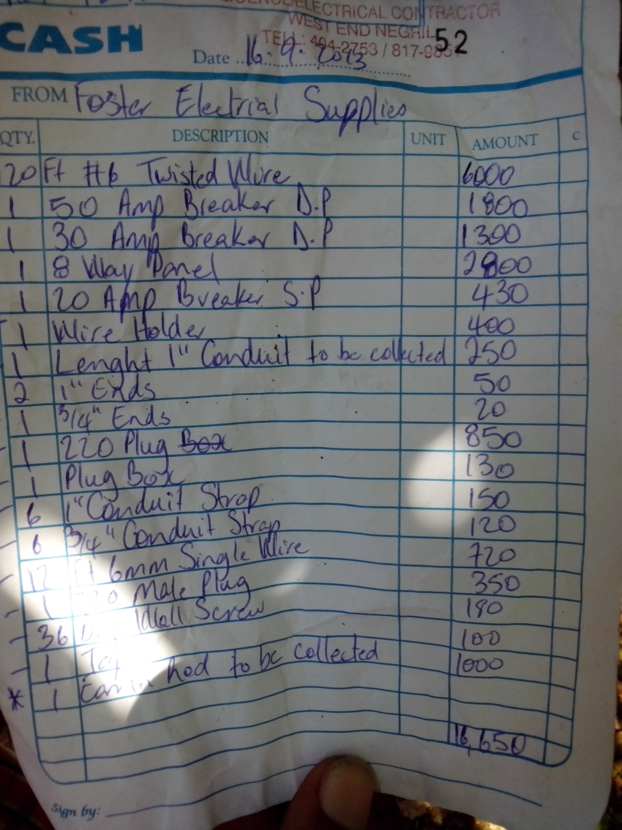 ELECTRICAL CONTRACTOR
WEST END NEGRIL
CASH
52
TEL: 404-2753 / 817-
Date 16.9.2013
FROM Foster Electrial Supplies
QTY. DESCRIPTION UNIT AMOUNT C
20 Ft #6 Twisted Wire 6000
1 50 Amp Breaker D.P 1800
1 30 Amp Breaker D.P 1300
1 8 Way Panel 2800
1 20 Amp Breaker S.P 430
1 Wire Holder 400
1 Lenght 1" Conduit to be collected 250
2 1" Ends 50
1 3/4" Ends 20
1 220 Plug Box 850
1 Plug Box 130
6 1" Conduit Strap 150
6 3/4" Conduit Strap 120
12 Ft 6mm Single Wire 720
1 Male Plug 350
36 Wall Screw 180
1 100
* 1 hod to be collected 1000
16,650
Sign by: